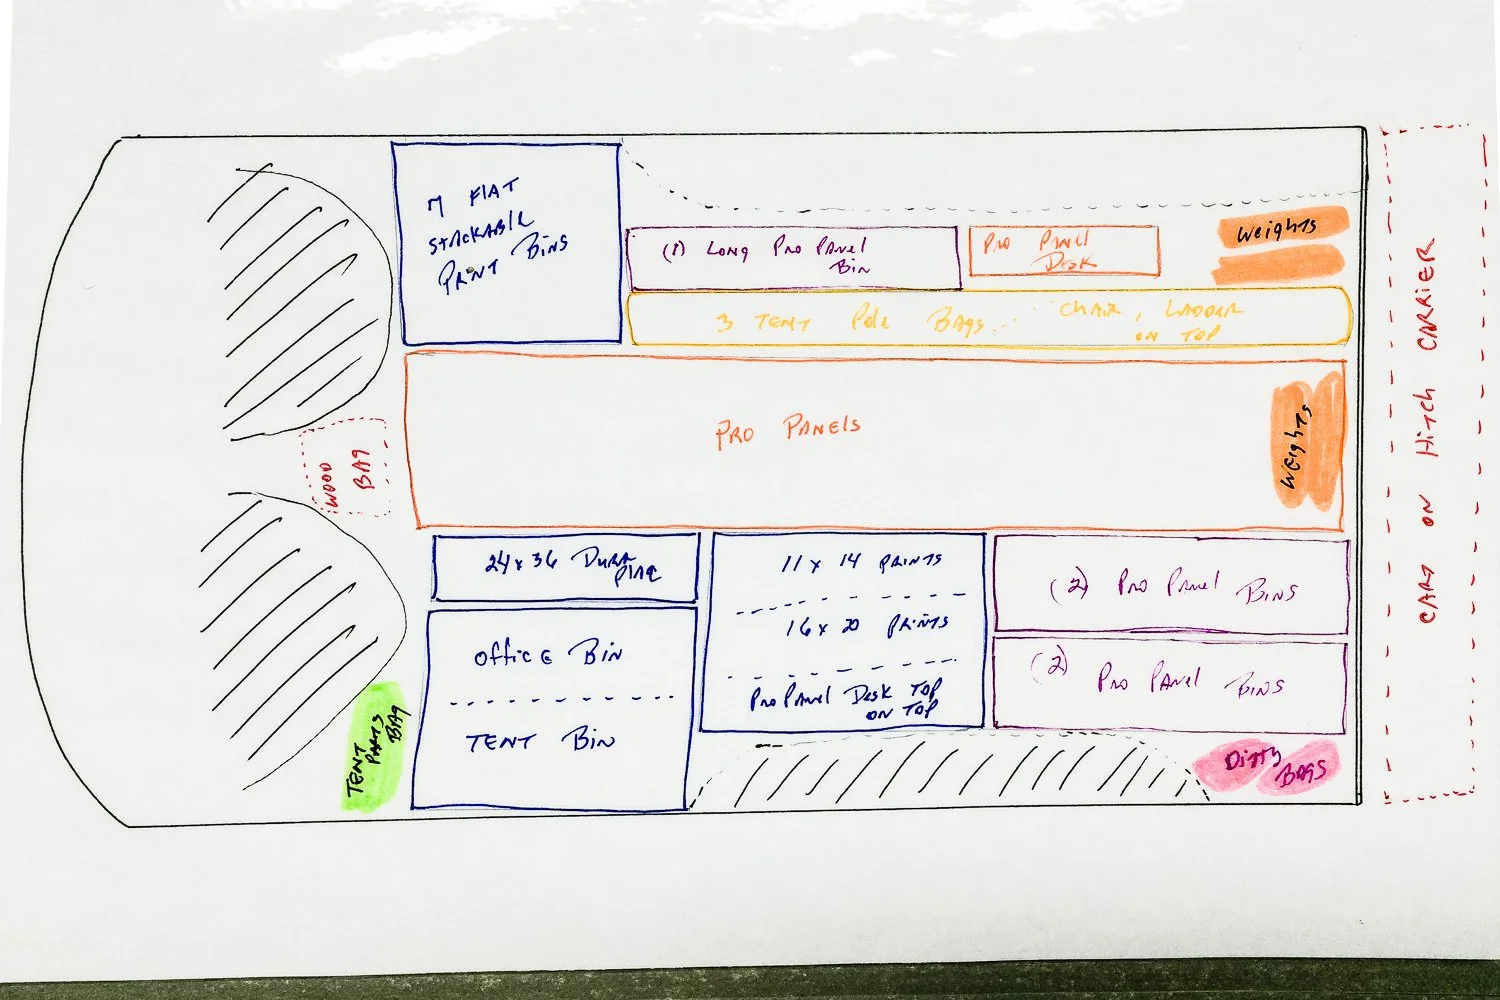 7 FLAT
STACKABLE
PRINT BINS
(1) LONG PRO PANEL
BIN
PRO PANEL
DESK
WEIGHTS
3 TENT POLE BAGS
CHAIR, LADDER
ON TOP
PRO PANELS
WEIGHTS
WOOD
BAG
24x36 DURA
PLAQ
11 x 14 PRINTS
16 x 20 PRINTS
PRO PANEL DESK TOP
ON TOP
(2) PRO PANEL BINS
(2) PRO PANEL BINS
OFFICE BIN
TENT BIN
TENT
PARTS
BAG
DITTY
BAGS
CART ON HITCH CARRIER